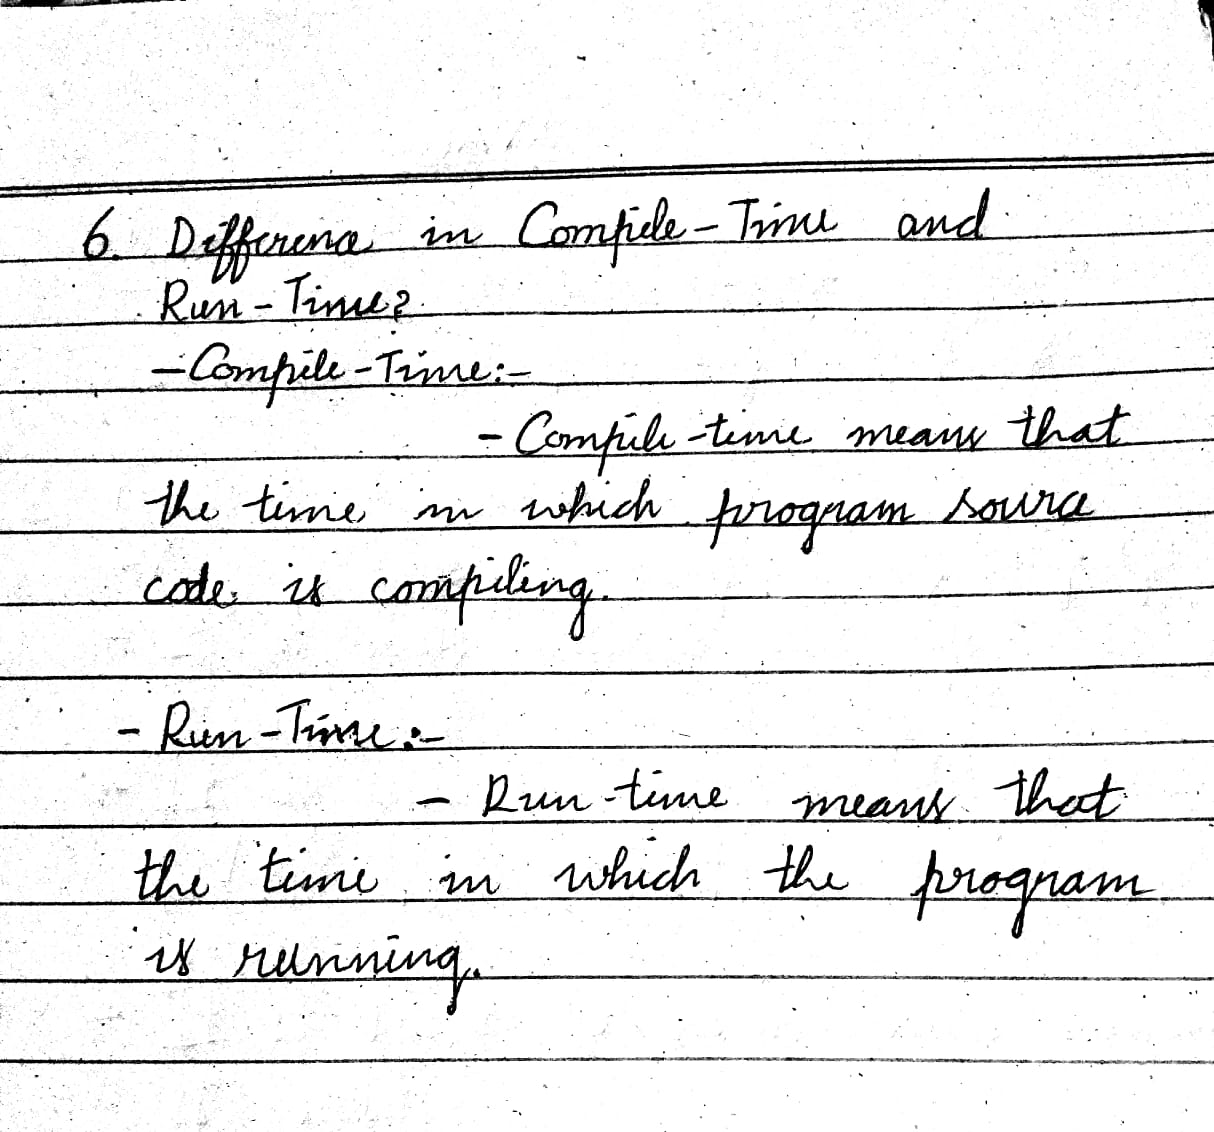 6. Difference in Compile-Time and
Run-Time?
- Compile-Time:-
- Compile-time means that
the time in which program source
code is compiling.
- Run-Time:-
- Run-time means that
the time in which the program
is running.